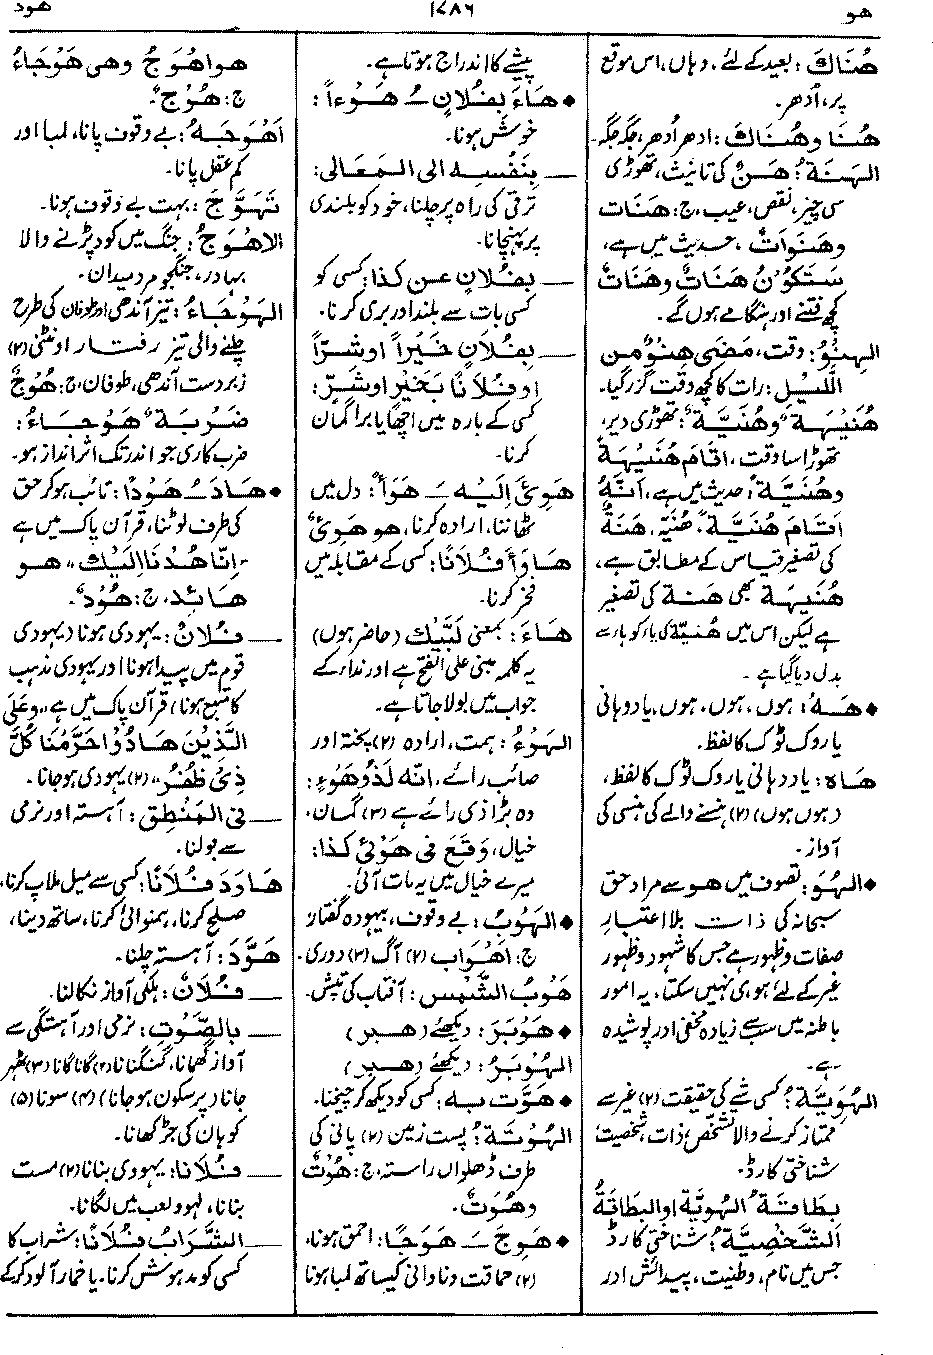 هو
۱۷۸۶
هود
هُنَاكَ : بعید کے لئے ، وہاں، اس موقع
پر، اُدھر۔
هُنَا وهُنَاكَ : ادھر اُدھر، جگہ جگہ۔
الهَنَةُ : هَنٌ کی تانیث، تھوڑی
سی چیز، نقص، عیب، ج: هَنَات
وهَنَوَاتٌ ، حدیث میں ہے،
سَتَكُوْنُ هَنَاتٌ وهَنَاتٌ
کچھ فتنے اور ہنگامے ہوں گے۔
الهِنْوُ : وقت، مَضَى هِنْوٌ من
اللَّيْلِ : رات کا کچھ وقت گزر گیا۔
هُنَيْهَة وهُنَيَّة : تھوڑی دیر،
تھوڑا سا وقت، اَقَامَ هُنَيْهَةً
وهُنَيَّةً ، حدیث میں ہے، اَنَّهُ
اَقَامَ هُنَيَّةً ، هُنَيَّه، هَنَةٌ
کی تصغیر قیاس کے مطابق ہے،
هُنَيْهَة بھی هَنَة کی تصغیر
ہے لیکن اس میں هُنَيَّة کی یا کو ہا سے
بدل دیا گیا ہے۔
♦ هَهْ : ہوں، ہوں، ہوں، یاد دہانی
یا روک ٹوک کا لفظ۔
هَاه : یاد دہانی یا روک ٹوک کا لفظ،
(ہوں ہوں) (۲) ہنسنے والے کی ہنسی کی
آواز۔
♦ الهُوَ : تصوف میں هو سے مراد حق
سبحانہ کی ذات بلا اعتبارِ
صفات وظہور ہے جس کا شہود وظہور
غیر کے لئے ہو ہی نہیں سکتا، یہ امور
باطنہ میں سب سے زیادہ مخفی اور پوشیدہ
ہے۔
الهُوِيَّةُ : کسی شے کی حقیقت (۲) غیر سے
ممتاز کرنے والا تشخص، ذات، شخصیت،
شناختی کارڈ۔
بِطَاقَةُ الهُوِيَّة اوالبِطَاقَةُ
الشَّخْصِيَّة : شناختی کارڈ
جس میں نام، وطنیت، پیدائش اور
پیشے کا اندراج ہوتا ہے۔
♦ هَاءَ بِفُلَانٍ ـُ هَوْءاً :
خوش ہونا۔
ـــ بِنَفْسِه الى المَعَالى :
ترقی کی راہ پر چلنا، خود کو بلندی
پر پہنچانا۔
ـــ بِفُلَانٍ عن كذا : کسی کو
کسی بات سے بلند اور بری کرنا۔
ـــ بِفُلَانٍ خَيْراً اوشَرّاً
اوفُلَانًا بِخَيْرٍ اوشَرٍّ :
کسی کے بارہ میں اچھا یا برا گمان
کرنا۔
هَوِئَ إِلَيْه ـَ هَوَأً : دل میں
ٹھاننا، ارادہ کرنا، هو هَوِئٌ
هَاوَأَ فُلَانًا : کسی کے مقابلہ میں
فخر کرنا۔
هَاءَ : بمعنی لَبَّيْكَ (حاضر ہوں)
یہ کلمہ مبنی علی الفتح ہے اور نداء کے
جواب میں بولا جاتا ہے۔
الهَوْءُ : ہمت، ارادہ (۲) پختہ اور
صائب رائے، اِنَّه لَذُو هَوْءٍ :
وہ بڑا ذی رائے ہے (۳) گمان،
خیال، وَقَعَ فى هَوْئى كذا :
میرے خیال میں یہ بات آئی۔
♦ الهَوْبُ : بے وقوف، بیہودہ گفتار
ج: اَهْوَاب (۲) آگ (۳) دوری۔
هَوْبُ الشَّمْس : آفتاب کی تپش۔
♦ هَوْبَر : دیکھئے (هبر)
الهَوْبَرُ : دیکھئے (هبر)
♦ هَوَّت به : کسی کو دیکھ کر چیخنا۔
الهُوْتَةُ : پست زمین (۲) پانی کی
طرف ڈھلواں راستہ، ج: هُوْتٌ
وهُوَتٌ۔
♦ هَوِجَ ـَ هَوَجًا : احمق ہونا،
(۲) حماقت و نادانی کیساتھ لمبا ہونا
هو اهْوَجُ وهى هَوْجَاءُ
ج: هُوْجٌ۔
اَهْوَجَهُ : بے وقوف پانا، لمبا اور
کم عقل پانا۔
تَهَوَّجَ : بہت بے وقوف ہونا۔
الاهْوَجُ : جنگ میں کود پڑنے والا
بہادر، جنگجو مرد میدان۔
الهَوْجَاءُ : تیز آندھی اور طوفان کی طرح
چلنے والی تیز رفتار اونٹنی (۲)
زبردست آندھی، طوفان، ج: هُوْجٌ
ضَرْبَةٌ هَوْجَاءُ :
ضرب کاری جو اندر تک اثر انداز ہو۔
♦ هَادَ ـُ هَوْداً : تائب ہو کر حق
کی طرف لوٹنا، قرآن پاک میں ہے
"اِنَّا هُدْنَا اِلَيْكَ" هو
هَائِد، ج: هُوْدٌ۔
ـــ فُلَانٌ : یہودی ہونا (یہودی
قوم میں پیدا ہونا اور یہودی مذہب
کا متبع ہونا) قرآن پاک میں ہے "وعَلَى
الَّذِيْنَ هَادُوْا حَرَّمْنَا كُلَّ
ذِىْ ظُفُرٍ" (۲) یہودی ہو جانا۔
ـــ فى المَنْطِق : آہستہ اور نرمی
سے بولنا۔
هَاوَدَ فُلَانًا : کسی سے میل ملاپ کرنا،
صلح کرنا، ہمنوائی کرنا، ساتھ دینا،
هَوَّدَ : آہستہ چلنا۔
ـــ فُلَانٌ : ہلکی آواز نکالنا۔
ـــ بالصَّوْتِ : نرمی اور آہستگی سے
آواز گھمانا، گنگنانا (۲) گانا گانا (۳) ٹھہر
جانا (پرسکون ہو جانا) (۴) سونا (۵)
کوہان کی جڑ کھانا۔
ـــ فُلَانًا : یہودی بنانا (۲) مست
بنانا، لہو و لعب میں لگانا۔
ـــ الشَّرَابُ فُلَانًا : شراب کا
کسی کو مدہوش کرنا۔ یا خمار آلود کر کے